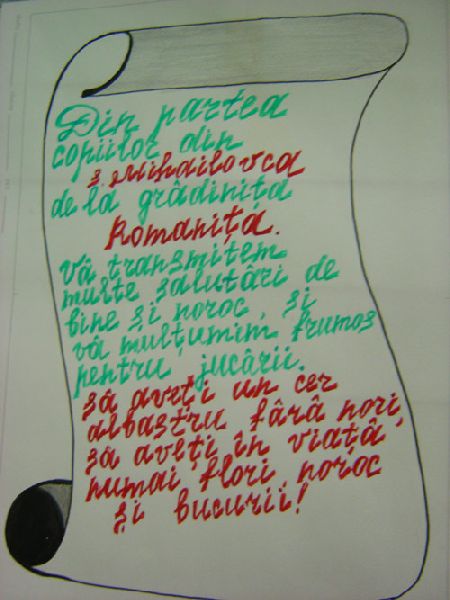 Din partea
copiilor din
s. Mihailovca
de la grădinița
Romanița.
Vă transmitem
multe salutări de
bine și noroc, și
vă mulțumim frumos
pentru jucării.
să aveți un cer
albastru fără nori,
să aveți în viață
numai flori, noroc
și bucurii!